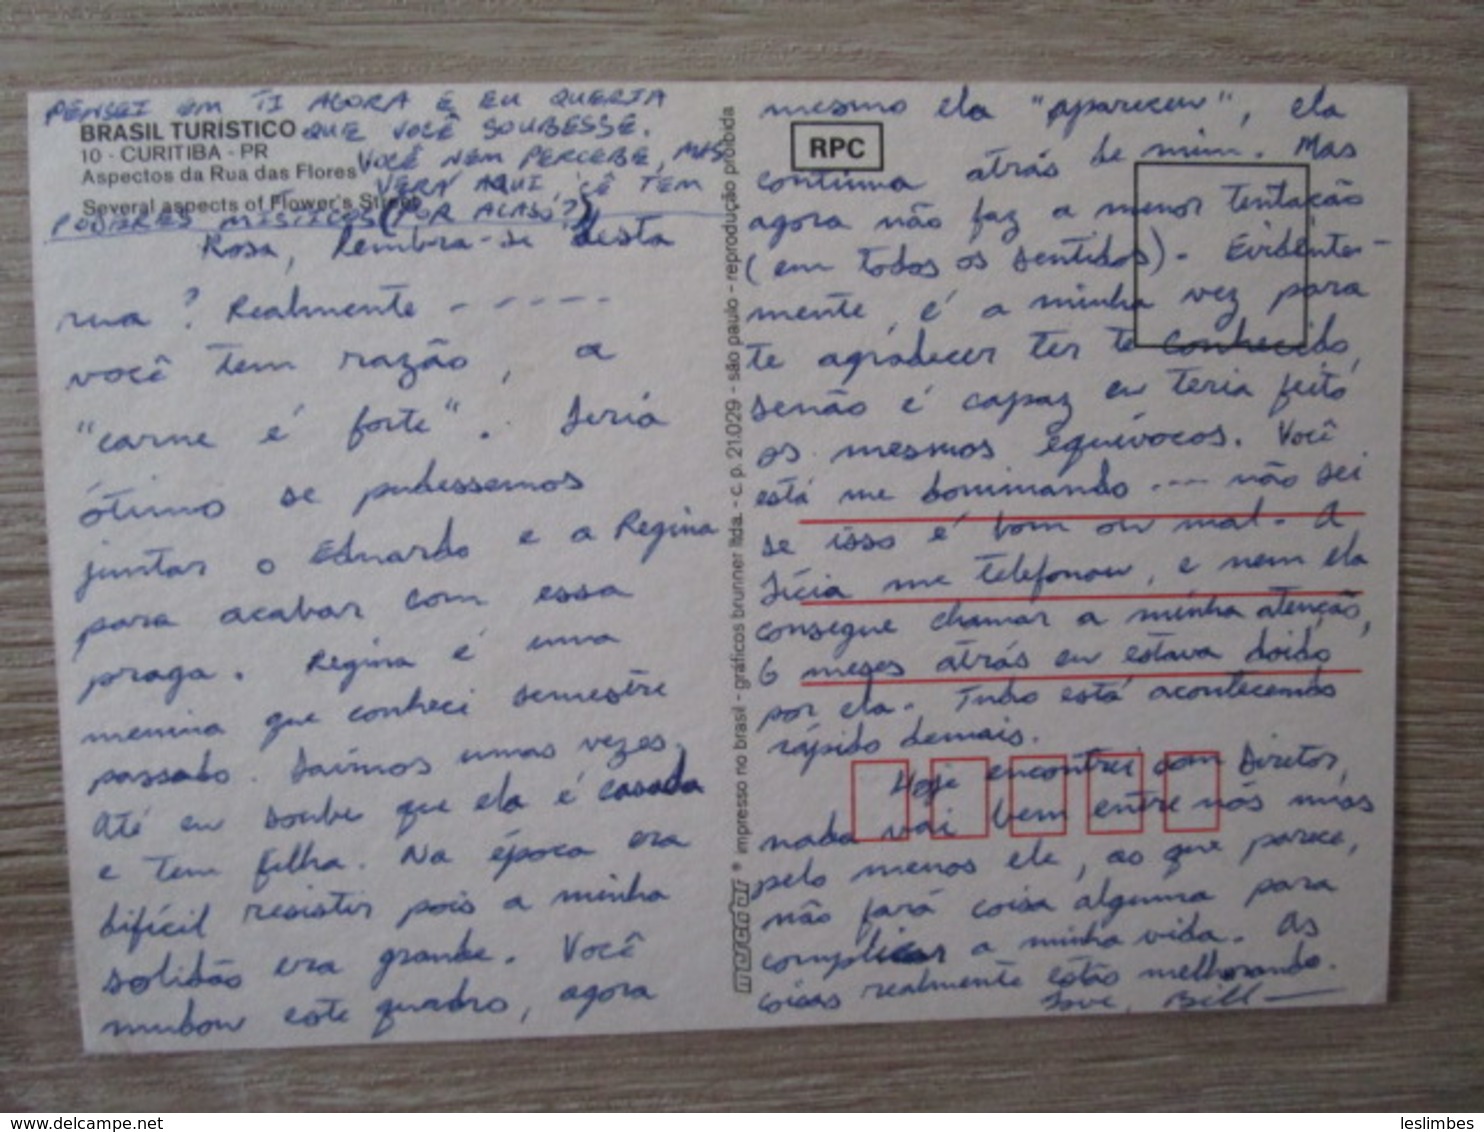 PENSEI EM TI AGORA E EU QUERIA
QUE VOCÊ SOUBESSE.
VOCÊ NEM PERCEBE, MAS
VERÁ AQUI, CÊ TEM
PODERES MÍSTICOS (POR ACASO?)
BRASIL TURÍSTICO
10 - CURITIBA - PR
Aspectos da Rua das Flores
Several aspects of Flower's Street
Rosa, lembra-se desta
rua? Realmente - - - - -
você tem razão, a
"carne é forte". Seria
ótimo se pudessemos
juntar o Eduardo e a Regina
para acabar com essa
praga. Regina é uma
menina que conheci semestre
passado. Saímos umas vezes.
Até eu soube que ela é casada
e tem filha. Na época era
difícil resistir pois a minha
solidão era grande. Você
mudou este quadro, agora
mercator ® impresso no brasil - gráficos brunner ltda. - c. p. 21.029 - são paulo - reprodução proibida
RPC
mesmo ela "apareceu", ela
continua atrás de mim. Mas
agora não faz a menor tentação
(em todos os sentidos). Evidente-
mente, é a minha vez para
te agradecer ter te conhecido,
senão é capaz eu teria feito
os mesmos equívocos. Você
está me dominando --- não sei
se isso é bom ou mal. A
Lícia me telefonou, e nem ela
consegue chamar a minha atenção,
6 meses atrás eu estava doido
por ela. Tudo está acontecendo
rápido demais.
Hoje encontrei com Diretor,
nada vai bem entre nós mas
pelo menos ele, ao que parece,
não fará coisa alguma para
complicar a minha vida. As
coisas realmente estão melhorando.
Love, Bill
delcampe.net
leslimbes